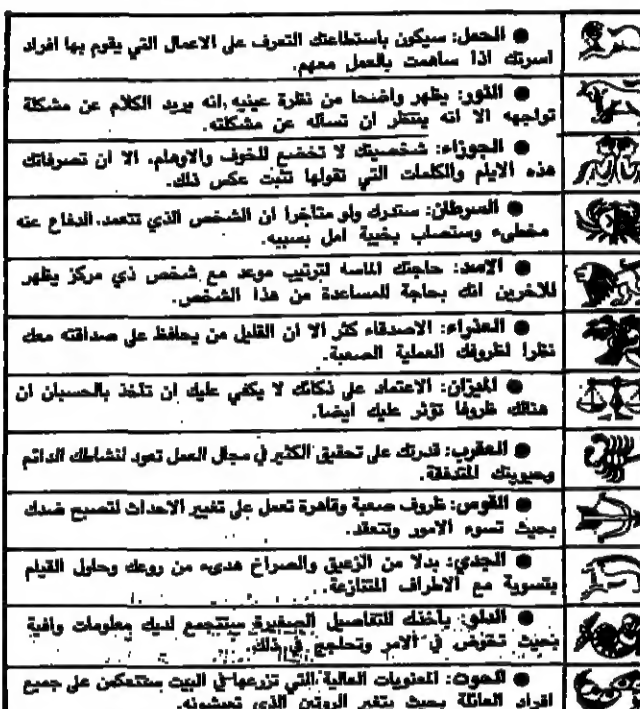 ● الحمل: سيكون باستطاعتك التعرف على الاعمال التي يقوم بها افراد
اسرتك اذا ساهمت بالعمل معهم.
● الثور: يظهر واضحا من نظرة عينيه انه يريد الكلام عن مشكلة
تواجهه الا انه ينتظر ان تسأله عن مشكلته.
● الجوزاء: شخصيتك لا تخضع للخوف والاوهام، الا ان تصرفاتك
هذه الايام والكلمات التي تقولها تثبت عكس ذلك.
● السرطان: ستدرك ولو متأخرا ان الشخص الذي تتعمد الدفاع عنه
مخطىء وستصاب بخيبة امل بسببه.
● الاسد: حاجتك الماسة لترتيب موعد مع شخص ذي مركز يظهر
للاخرين انك بحاجة للمساعدة من هذا الشخص.
● العذراء: الاصدقاء كثر الا ان القليل من يحافظ على صداقته معك
نظرا لظروفك العملية الصعبة.
● الميزان: الاعتماد على ذكائك لا يكفي عليك ان تأخذ بالحسبان ان
هنالك ظروفا تؤثر عليك ايضا.
● العقرب: قدرتك على تحقيق الكثير في مجال العمل تعود لنشاطك الدائم
وحيويتك المتدفقة.
● القوس: ظروف صعبة وقاهرة تعمل على تغيير الاحداث لتصبح ضدك
بحيث تسوء الامور وتتعقد.
● الجدي: بدلا من الزعيق والصراخ هدىء من روعك وحاول القيام
بتسوية مع الاطراف المتنازعة.
● الدلو: يأخذك للتفاصيل الصغيرة ستتجمع لديك معلومات وافية
بحيث تخوض في الامر وتحاجج في ذلك.
● الحوت: المعنويات العالية التي تزرعها في البيت ستنعكس على جميع
افراد العائلة بحيث يتغير الروتين الذي تعيشونه.